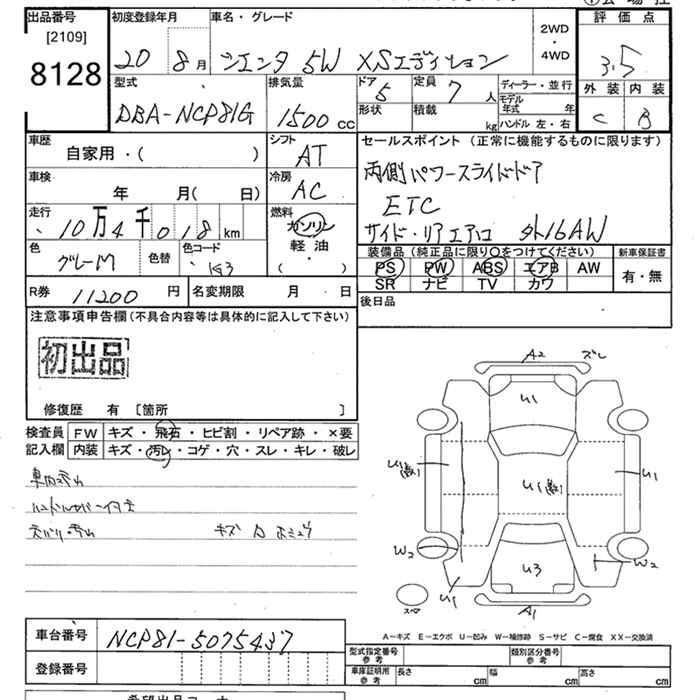 出品番号 [2109] 8128
初度登録年月 20 8月
車名・グレード シエンタ 5W XSエディション
2WD・4WD
評価点 3.5
外装 C 内装 B
型式 DBA-NCP81G
排気量 1500 cc
ドア 5 形状
定員 7 人 積載 kg
ディーラー・並行
モデル年式 年
ハンドル 左・右
車歴 自家用・( )
シフト AT
車検 年 月(日)
冷房 AC
走行 10万4千018 km
燃料 ガソリン 軽油・( )
色 グレーM 色替 色コード 1G3
R券 11200 円 名変期限 月 日
セールスポイント (正常に機能するものに限ります)
両側パワースライドドア
ETC
サイド・リアエアロ 外16AW
装備品(純正品に限り○をつけてください)
新車保証書 有・無
PS PW ABS エアB AW
SR ナビ TV カワ
後日品
注意事項申告欄(不具合内容等は具体的に記入して下さい)
初出品
修復歴 有 〔箇所 〕
検査員記入欄
FW キズ・飛石・ヒビ割・リペア跡・×要
内装 キズ・汚レ・コゲ・穴・スレ・キレ・破レ
車内汚れ
キズ
A2 ズレ
U1
U1 U1 U1
W2 W2
U3
U1
スペア
A1
A-キズ E-エクボ U-凹み W-補修跡 S-サビ C-腐食 XX-交換済
車台番号 NCP81-5075437
登録番号
型式指定番号 参考 類別区分番号 参考
車庫証明用 参考 長さ cm 幅 cm 高さ cm